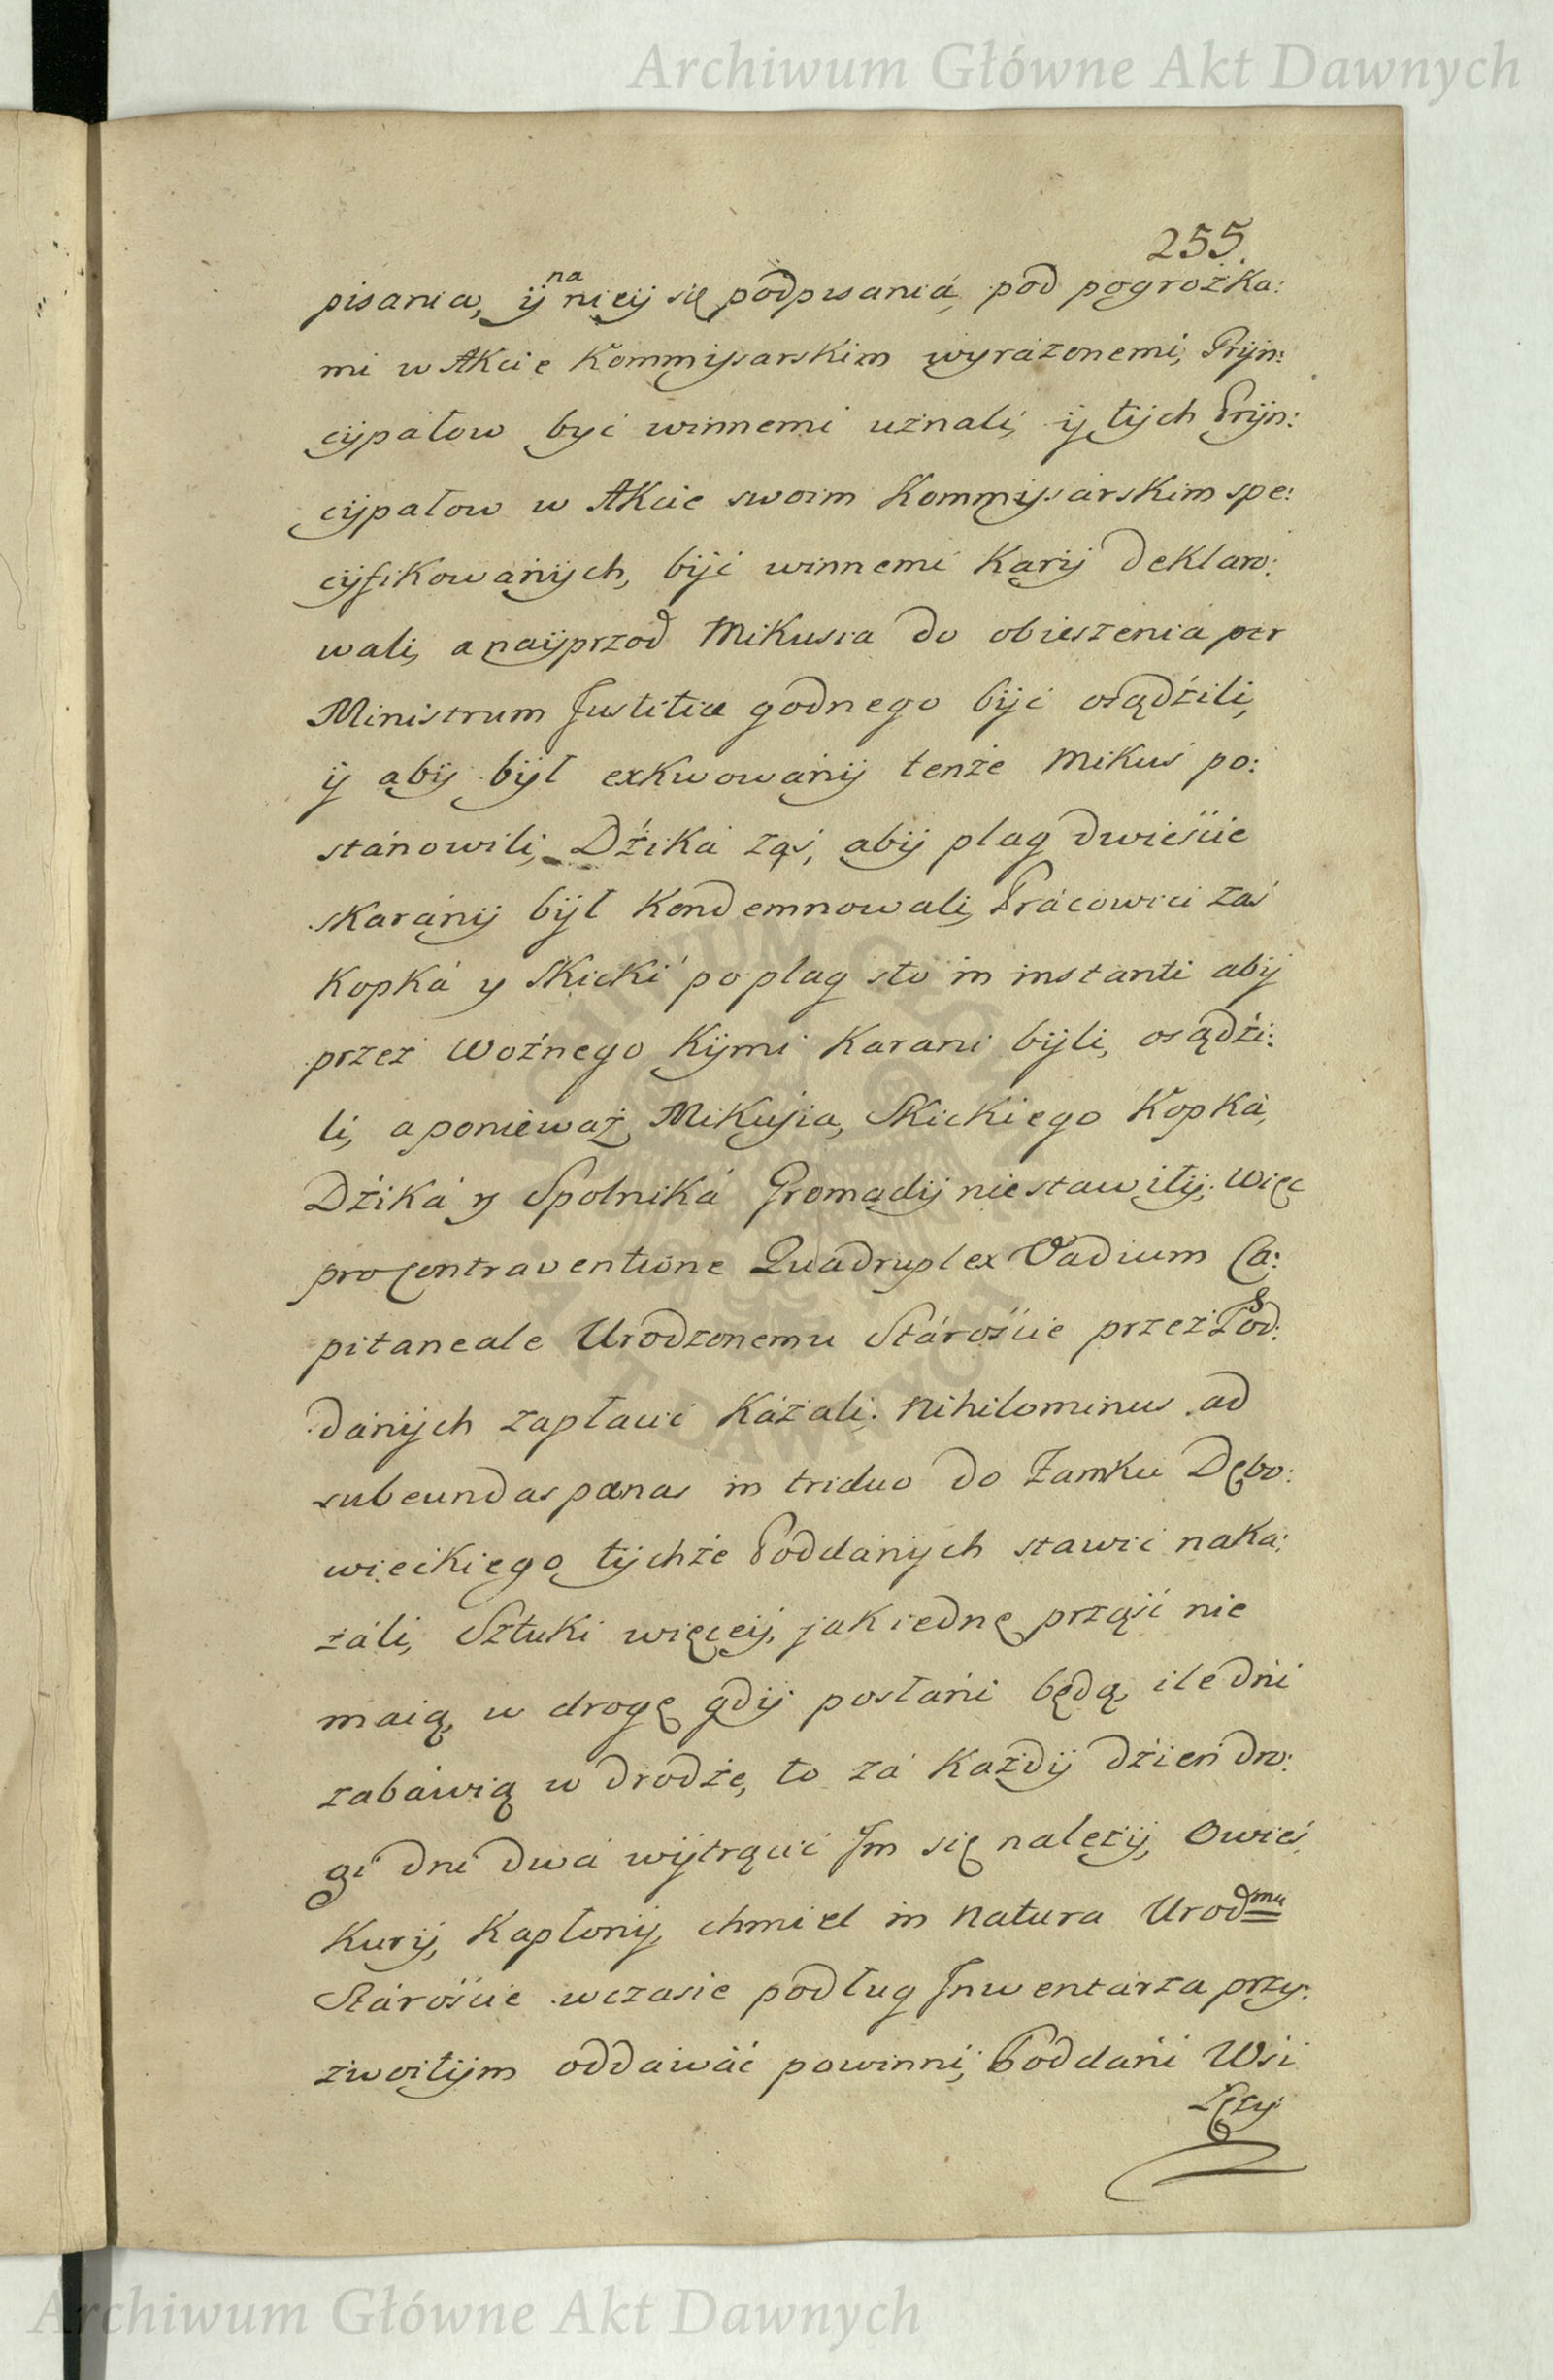 Archiwum Główne Akt Dawnych
255.
na
pisania, ÿ nieÿ się podpisaniá, pod pogrożka:
mi w Akcie Kommissarskim wyrażonemi, Prÿn:
cÿpałow być winnemi uznali, ÿ tÿch Prÿn:
cÿpałow w Akcie swoim Kommissarskim spe:
cÿfikowanÿch, bÿć winnemi Karÿ deklaro:
wali, a naÿprzod Mikusia do obieszenia per
Ministrum Justitiæ godnego bÿć osądźili,
ÿ abÿ bÿł exkwowanÿ tenże Mikuś po:
stánowili, Dźiká zaś, abÿ plag dwieście
skaranÿ bÿł kondemnowali, Prácowici zaś
Kopká y Skicki po plag sto in instanti abÿ
przez Woźnego Kÿmi karani bÿli, osądźi:
li, a ponieważ Mikusia, Skickiego Kopká,
Dźiká y Spolniká Gromadÿ nie stawiłÿ. Więc
pro contraventione Quadruplex Vadium Ca:
pitaneale Urodzonemu Stárośćie przez Pod:
dánÿch zapłacić kázáli. Nihilominus ad
subeundas pœnas in triduo do Zamku Dębo:
wieckiego tÿchże Poddánÿch stawić naka:
záli, Sztuki więceÿ, jak iednę prząść nie
maią, w drogę gdÿ posłáni będą, ile dni
zabáwią w drodże, to zá Każdÿ dźień dro:
gi dni dwá wÿtrącić Jm się należÿ, Owieś,
Kurÿ, Kapłonÿ, chmiel in natura Urodmu
Stárośćie wczasie podług Jnwentárza przy:
zwoitÿm oddawáć powinni, Poddáni Wsi
Łęży
ARCHIWUM GŁÓWNE AKT DAWNYCH
Archiwum Główne Akt Dawnych